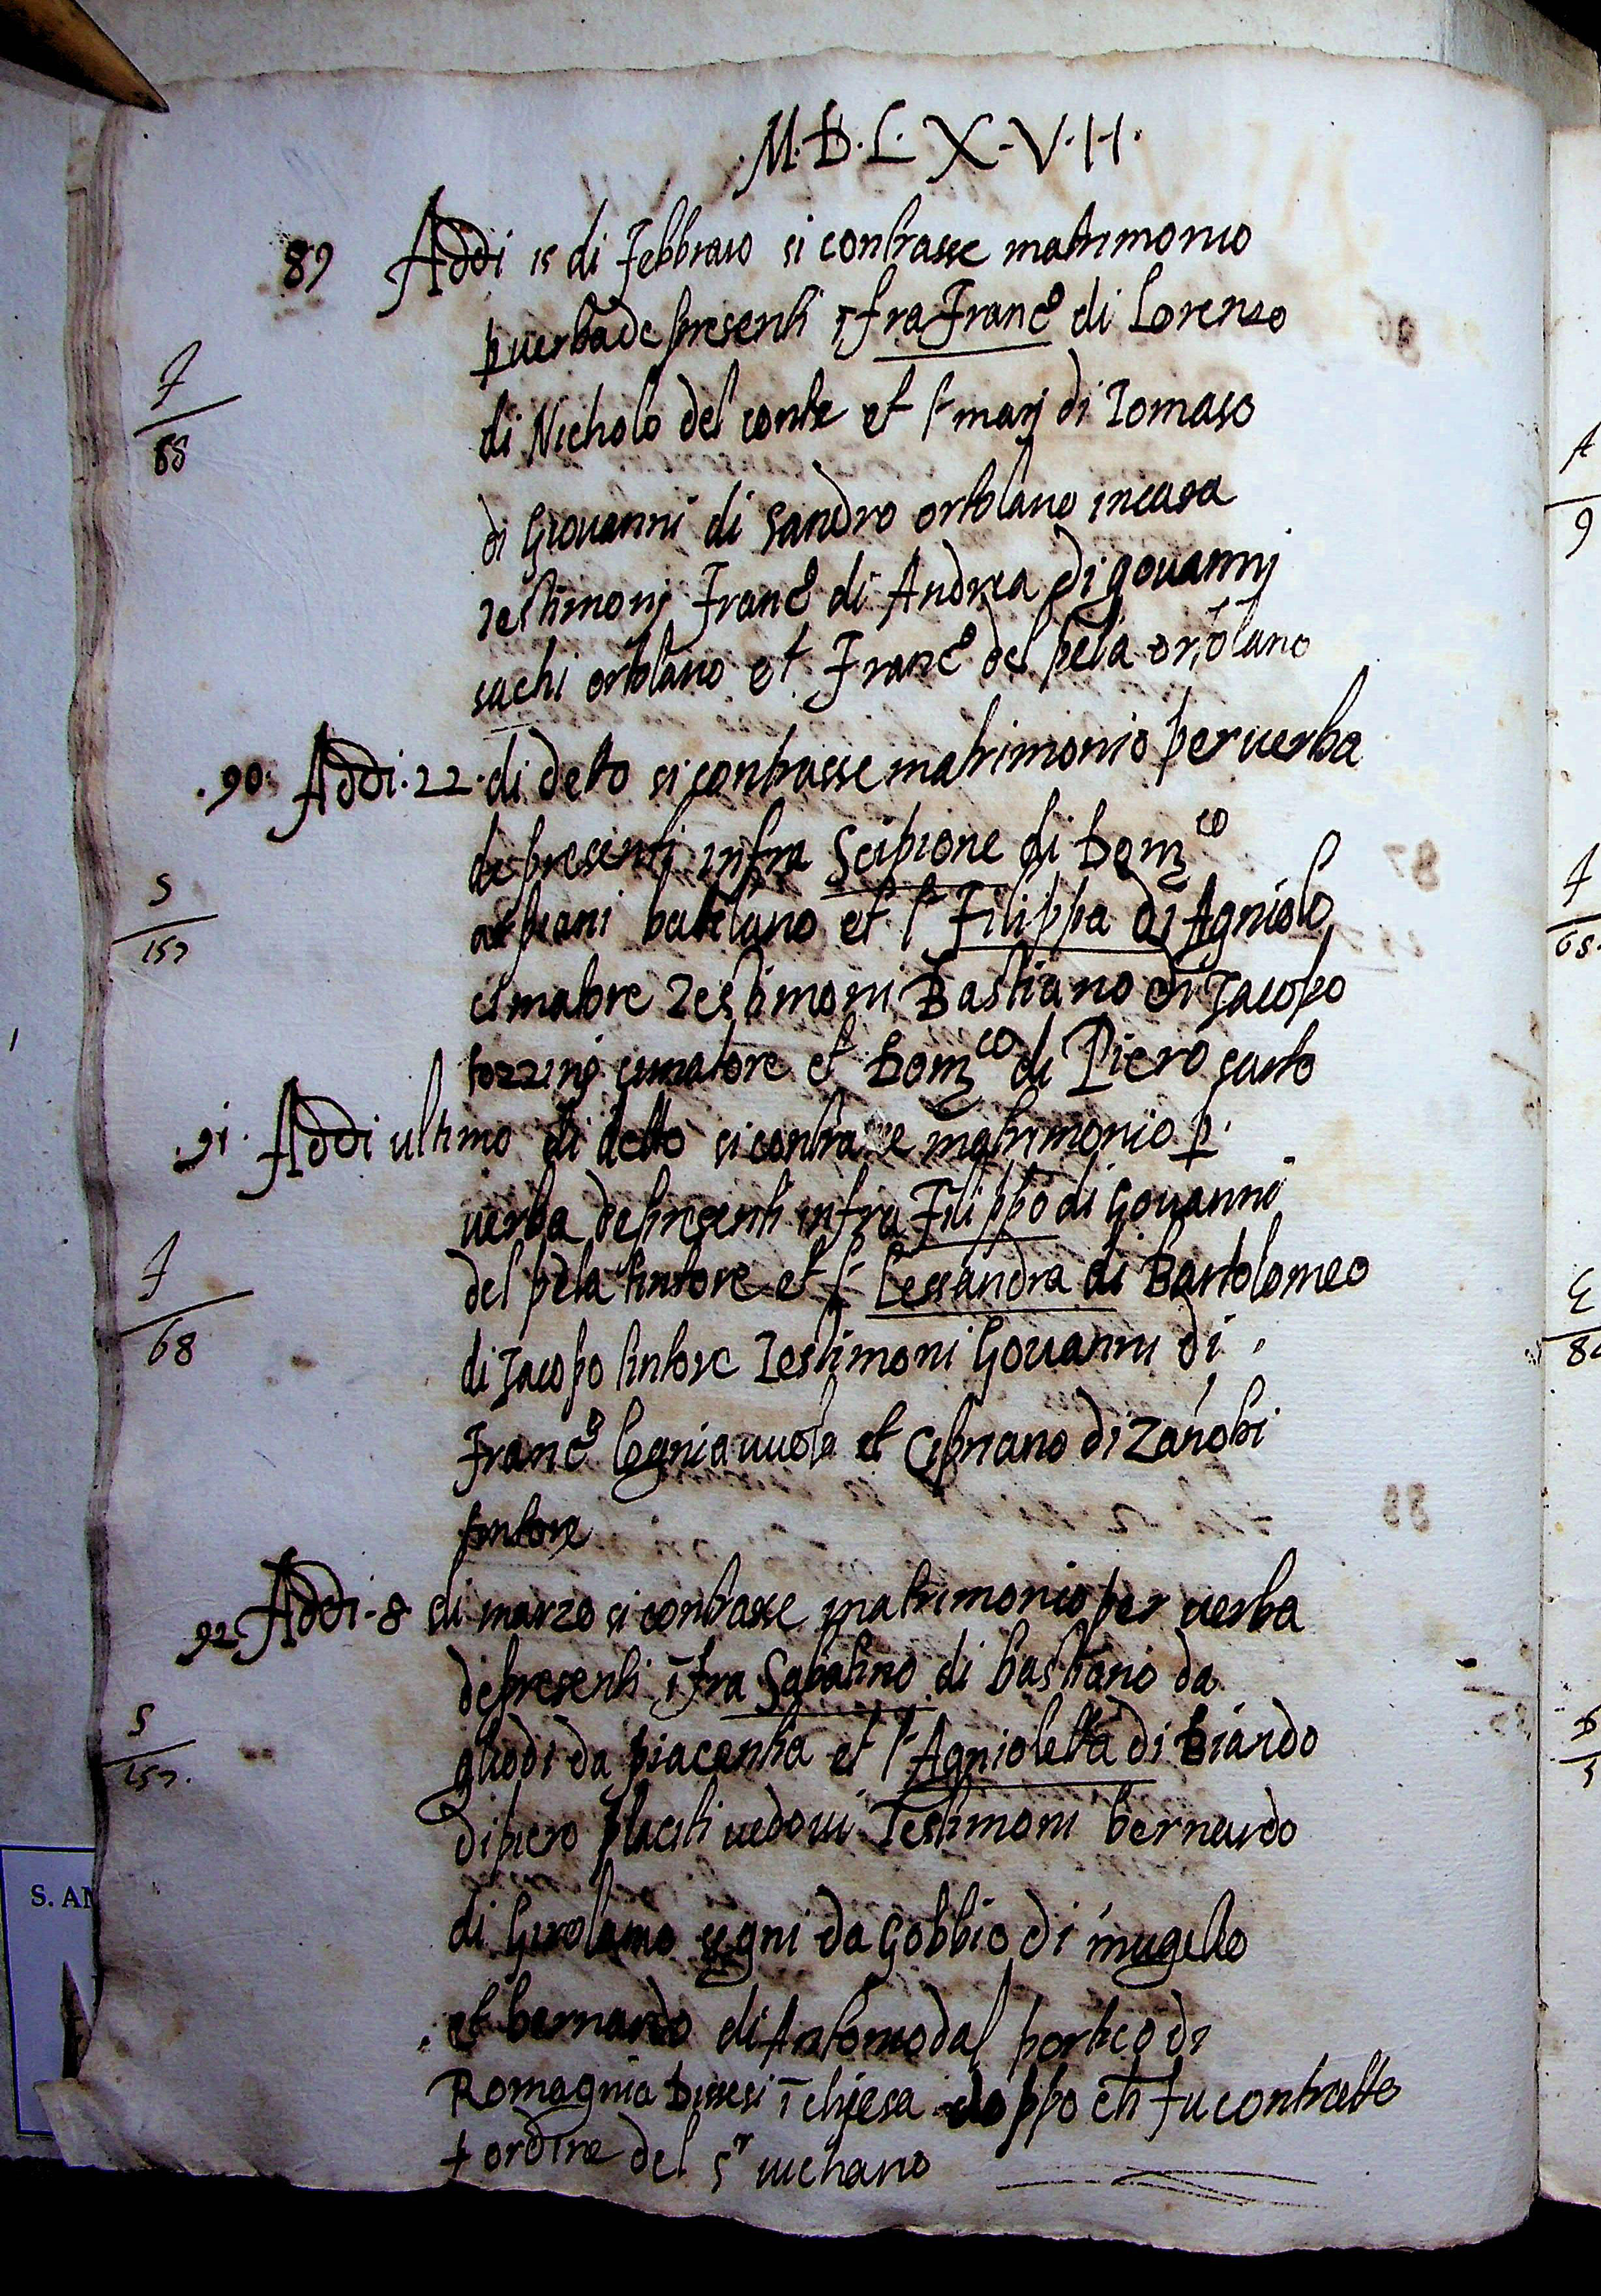 M.D.L.X.V.II.
89 Addi 15 di Febbraio si contrasse matrimonio
p verba de presenti īfra Franc.o di Lorenzo
F
88
di Nicholo del conte et l mar di Tomaso
di Giovanni di Sandro ortolano in casa
Testimonj Franc.o di Andrea di govannj
sachi ortolano et Franc.o del pela ortolano
.90. Addi.22.di detto si contrasse matrimonio per verba
de presentj infra Scipione di Dom co
S
157
batelano et l Filippa di Agniolo
cimatore Testimoni Bastiano di Jacopo
tozzini cimatore et Dom co di Piero sarto
.91. Addi ultimo di detto si contrasse matrimonio p.
verba de presenti infra Filippo di Govanni
F
68
del pela tintore et l Lessandra di Bartolomeo
di Jacopo tintore Testimoni Govanni di
Franc.o legniaiuolo et Cipriano di Zanobi
tintore
92 Addi-8 di marzo si contrasse matrimonio per verba
de presenti īfra Sabatino di bastiano da
S
157.
da piacentia et l Agnioletta di Biardo
di piero placiti vedovi Testimoni bernardo
di Girolamo da Gobbio di mugello
et bernardo di Antonio dal portico di
Romagnia ī chiesa doppo ch fu contratto
ordine del s.r vichario
S. AN
A
9
F
E